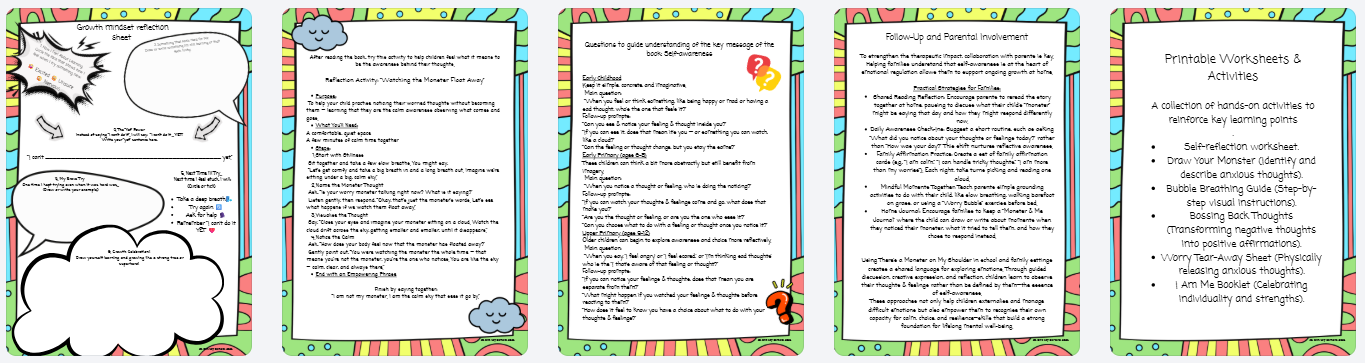 Growth mindset reflection
Sheet
2. The Yet Power
Instead of saying "I can't do it", I will say, "I can't do it... YET!"
Write your "yet" sentence here.
"I can't yet."
3. My Brave Try
One time I kept trying even when it was hard was...
(Draw or write your example)
4. Next Time I'll Try
Next time I feel stuck, I will:
(Circle or tick)
Take a deep breath
Try again
Ask for help
Remember "I can't do it
YET"
5. Growth Celebration!
Draw yourself learning and growing like a strong tree or
superhero!
After reading the book, try this activity to help children feel what it means to
be the awareness behind their thoughts.
Reflection Activity: "Watching the Monster Float Away"
Purpose:
To help your child practise noticing their worried thoughts without becoming
them — learning that they are the calm awareness observing what comes and
goes.
What You'll Need:
A comfortable, quiet space
A few minutes of calm time together
Steps:
1. Start with Stillness
Sit together and take a few slow breaths. You might say:
"Let's get comfy and take a big breath in and a long breath out. Imagine we're
sitting under a big, calm sky."
2. Name the Monster Thought
Ask: "Is your worry monster talking right now? What is it saying?"
Listen gently, then respond: "Okay, that's just the monster's words. Let's see
what happens if we watch them float away."
3. Visualise the Thought
Say: "Close your eyes and imagine your monster sitting on a cloud. Watch the
cloud drift across the sky, getting smaller and smaller, until it disappears."
4. Notice the Calm
Ask: "How does your body feel now that the monster has floated away?"
Gently point out: "You were watching the monster the whole time — that
means you're not the monster, you're the one who notices. You are like the sky
— calm, clear, and always there."
End with an Empowering Phrase
Finish by saying together:
"I am not my monster, I am the calm sky that sees it go by."
Questions to guide understanding of the key message of the
book: Self-awareness
Early Childhood
Keep it simple, concrete, and imaginative.
Main question:
"When you feel or think something, like being happy or mad or having a
sad thought, who's the one that feels it?"
Follow-up prompts:
"Can you see & notice your feeling & thought inside you?
"If you can see it, does that mean it's you — or something you can watch,
like a cloud?
"Can the feeling or thought change, but you stay the same?
Early Primary (ages 5-8):
These children can think a bit more abstractly but still benefit from
imagery.
Main question:
"When you notice a thought or feeling, who is doing the noticing?
Follow-up prompts:
"If you can watch your feelings & thoughts come and go, what does that
make you?
"Are you the thought or feeling, or are you the one who sees it?
"Can you choose what to do with a feeling or thought once you notice it?
Upper Primary (ages 9-12)
Older children can begin to explore awareness and choice more reflectively.
Main question:
"When you say, 'I feel angry' or 'I feel scared', or 'I'm thinking sad thoughts'
who is the 'I' that's aware of that feeling or thought?
Follow-up prompts:
"If you can notice your feelings & thoughts, does that mean you are
separate from them?
"What might happen if you watched your feelings & thoughts before
reacting to them?
"How does it feel to know you have a choice about what to do with your
thoughts & feelings?
Follow-Up and Parental Involvement
To strengthen the therapeutic impact, collaboration with parents is key.
Helping families understand that self-awareness is at the heart of
emotional regulation allows them to support ongoing growth at home.
Practical Strategies for Families:
Shared Reading Reflection: Encourage parents to reread the story
together at home, pausing to discuss what their child's "monster"
might be saying that day and how they might respond differently
now.
Daily Awareness Check-ins: Suggest a short routine, such as asking
"What did you notice about your thoughts or feelings today?" rather
than "How was your day?" This shift nurtures reflective awareness.
Family Affirmation Practice: Create a set of family affirmation
cards (e.g., "I am calm," "I can handle tricky thoughts," "I am more
than my worries"). Each night, take turns picking and reading one
aloud.
Mindful Moments Together: Teach parents simple grounding
activities to do with their child, like slow breathing, walking barefoot
on grass, or using a "Worry Bubble" exercise before bed.
Home Journal: Encourage families to keep a "Monster & Me
Journal" where the child can draw or write about moments when
they noticed their monster, what it tried to tell them, and how they
chose to respond instead.
Using There's a Monster on My Shoulder in school and family settings
creates a shared language for exploring emotions. Through guided
discussion, creative expression, and reflection, children learn to observe
their thoughts & feelings rather than be defined by them—the essence
of self-awareness.
These approaches not only help children externalise and manage
difficult emotions but also empower them to recognise their own
capacity for calm, choice, and resilience—skills that build a strong
foundation for lifelong mental well-being.
Printable Worksheets &
Activities
A collection of hands-on activities to
reinforce key learning points
.
Self-reflection worksheet.
Draw Your Monster (Identify and
describe anxious thoughts).
Bubble Breathing Guide (Step-by-
step visual instructions).
Bossing Back Thoughts
(Transforming negative thoughts
into positive affirmations).
Worry Tear-Away Sheet (Physically
releasing anxious thoughts).
I Am Me Booklet (Celebrating
individuality and strengths).